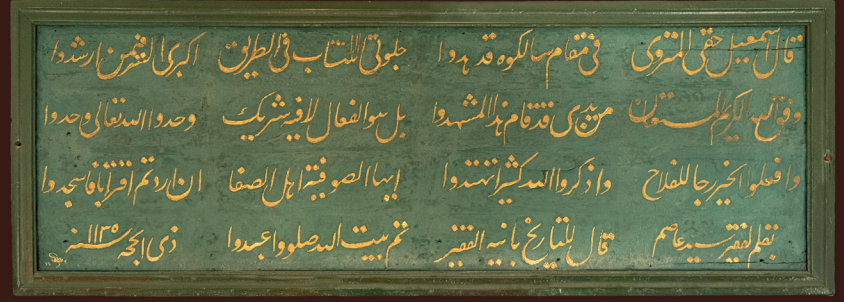 قال اسمعيل حقى المنزوى في مقام سالكوه قد هدوا جلوتي الانتساب في الطريق اكبري السر فيمن ارشدوا
وفق الله الكريم المستعان من يدي قد قام هذا المشهدوا بل هو الفعال لا فيه شريك وحدوا الله تعالى وحدوا
وافعلوا الخير رجا للفلاح واذكروا الله كثيرا تهتدوا ايها الصوفية اهل الصفا ان اردتم اقترابا فاسجدوا
بقلم الفقير سيد عاصم قال للتاريخ بانيه الفقير تم بيت الله صلوا واعبدوا ذي الحجه سنة ١١٣٥